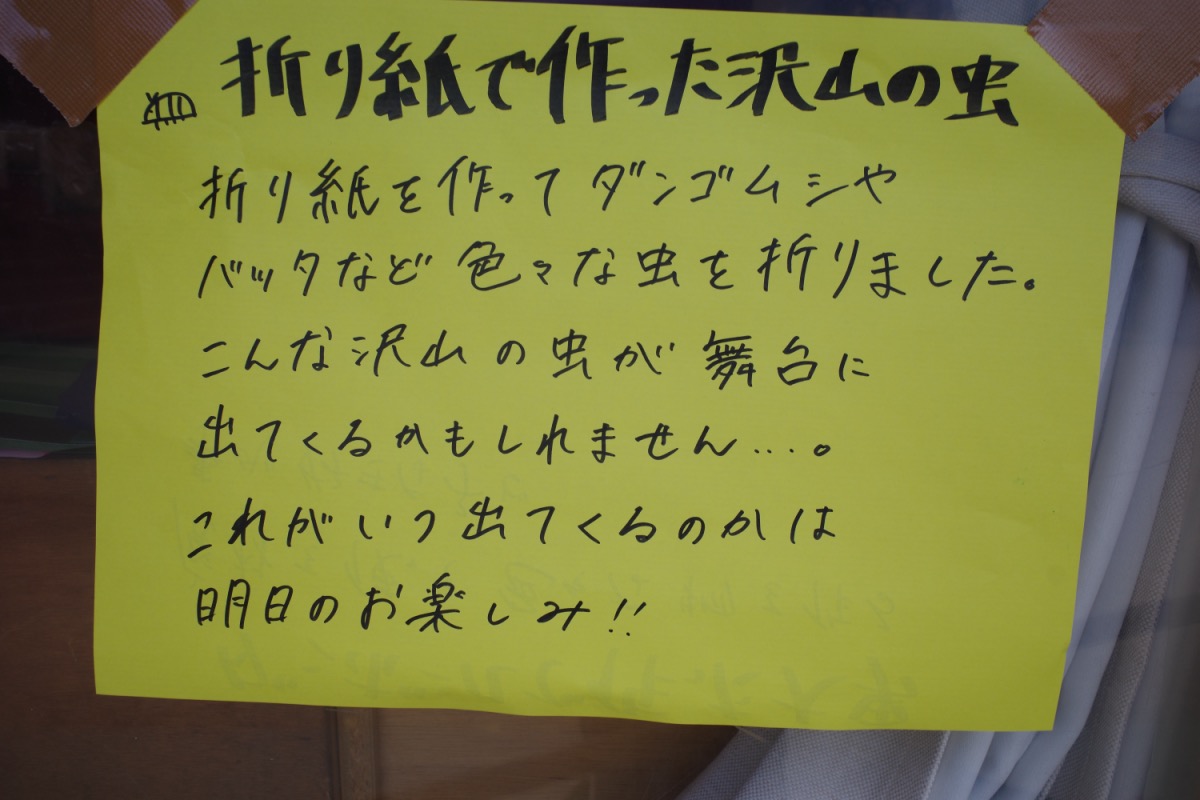 折り紙で作った沢山の虫
折り紙を作ってダンゴムシや
バッタなど色々な虫を折りました。
こんな沢山の虫が舞台に
出てくるかもしれません…。
これがいつ出てくるのかは
明日のお楽しみ!!